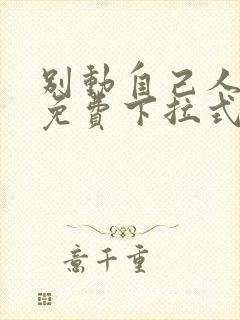 别動自己人
免費下拉式
意千重